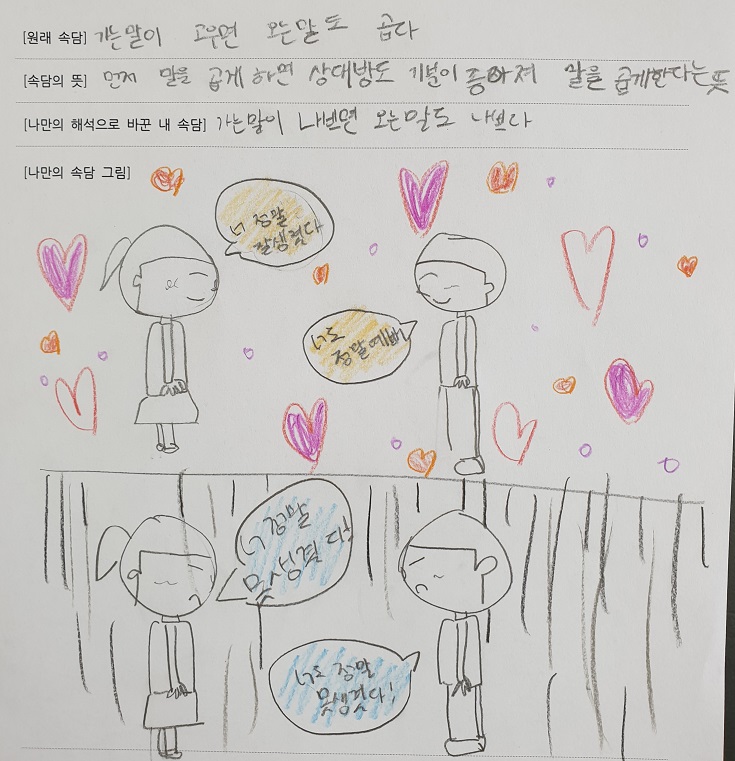 [원래 속담] 가는말이 고우면 오는말도 곱다
[속담의 뜻] 먼저 말을 곱게 하면 상대방도 기분이 좋아져 말을 곱게한다는 뜻
[나만의 해석으로 바꾼 내 속담] 가는말이 나쁘면 오는말도 나쁘다
[나만의 속담 그림]
너 정말
잘생겼다
너도
정말예뻐
너 정말
못생겼다!
너도 정말
못생겼다!